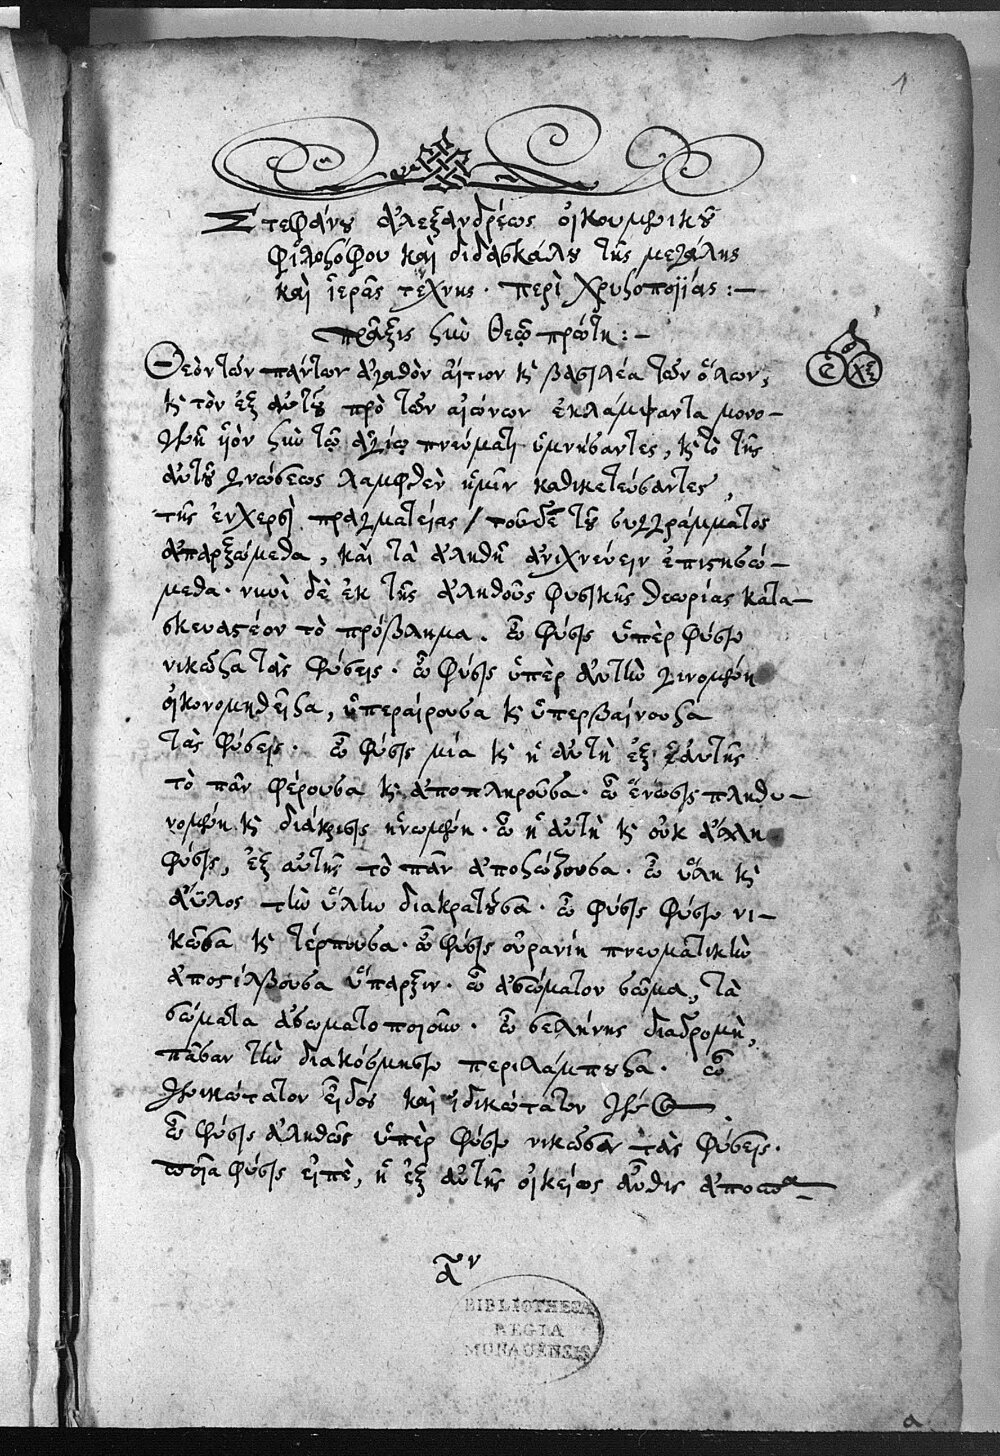 1
Στεφάνου ἀλεξανδρέως οἰκουμενικοῦ
φιλοσόφου καὶ διδασκάλου τῆς μεγάλης
καὶ ἱερᾶς τέχνης · περὶ χρυσοποιΐας :—
πρᾶξις σὺν θεῷ πρώτη :—
Θεὸν τὸν πάντων ἀγαθὸν αἴτιον κ βασιλέα τῶν ὅλων,
κ τὸν ἐξ αὐτοῦ πρὸ τῶν αἰώνων ἐκλάμψαντα μονο-
γενῆ υἱὸν σὺν τῷ ἁγίῳ πνεύματι ὑμνήσαντες, κ τὸ τῆς
αὐτοῦ γνώσεως λαμφθὲν ἡμῖν καθικετεύσαντες,
τῆς ἐν χερσὶ πραγματείας / τοῦδε τοῦ συγγράμματος
ἀπαρξώμεθα, καὶ τὰ ἀληθῆ ἀνιχνεύειν ἐπιστησώ-
μεθα · νυνὶ δὲ ἐκ τῆς ἀληθοῦς φυσικῆς θεωρίας κατα-
σκευαστέον τὸ πρόβλημα. ὦ φύσις ὑπὲρ φύσιν
νικῶσα τὰς φύσεις · ὦ φύσις ὑπὲρ αὐτὴν γινομένη
οἰκονομηθεῖσα, ὑπεραίρουσα κ ὑπερβαίνουσα
τὰς φύσεις · ὦ φύσις μία κ ἡ αὐτὴ ἐξ ἑαυτῆς
τὸ πᾶν φέρουσα κ ἀποπληροῦσα · ὦ ἕνωσις πληθυ-
νομένη κ διάκρισις ἡνωμένη · ὦ ἡ αὐτὴ κ οὐκ ἄλλη
φύσις, ἐξ αὐτῆς τὸ πᾶν ἀποσώζουσα · ὦ ὕλη κ
ἄϋλος τὴν ὕλην διακρατοῦσα · ὦ φύσις φύσιν νι-
κῶσα κ τέρπουσα · ὦ φύσις οὐρανίη πνευματικὴν
ἀποστίλβουσα ὕπαρξιν · ὦ ἀσώματον σῶμα, τὰ
σώματα ἀσωματοποιοῦν · ὦ σελήνης διαδρομὴ,
πᾶσαν τὴν διακόσμησιν περιλάμπουσα · ὦ
γενικώτατον εἶδος καὶ εἰδικώτατον γένος
ὦ φύσις ἀληθῶς ὑπὲρ φύσιν νικῶσα τὰς φύσεις ·
ποία φύσις εἰπὲ, ἡ ἐξ αὐτῆς οἰκείως αὖθις
BIBLIOTHECA
REGIA
MONACENSIS
α